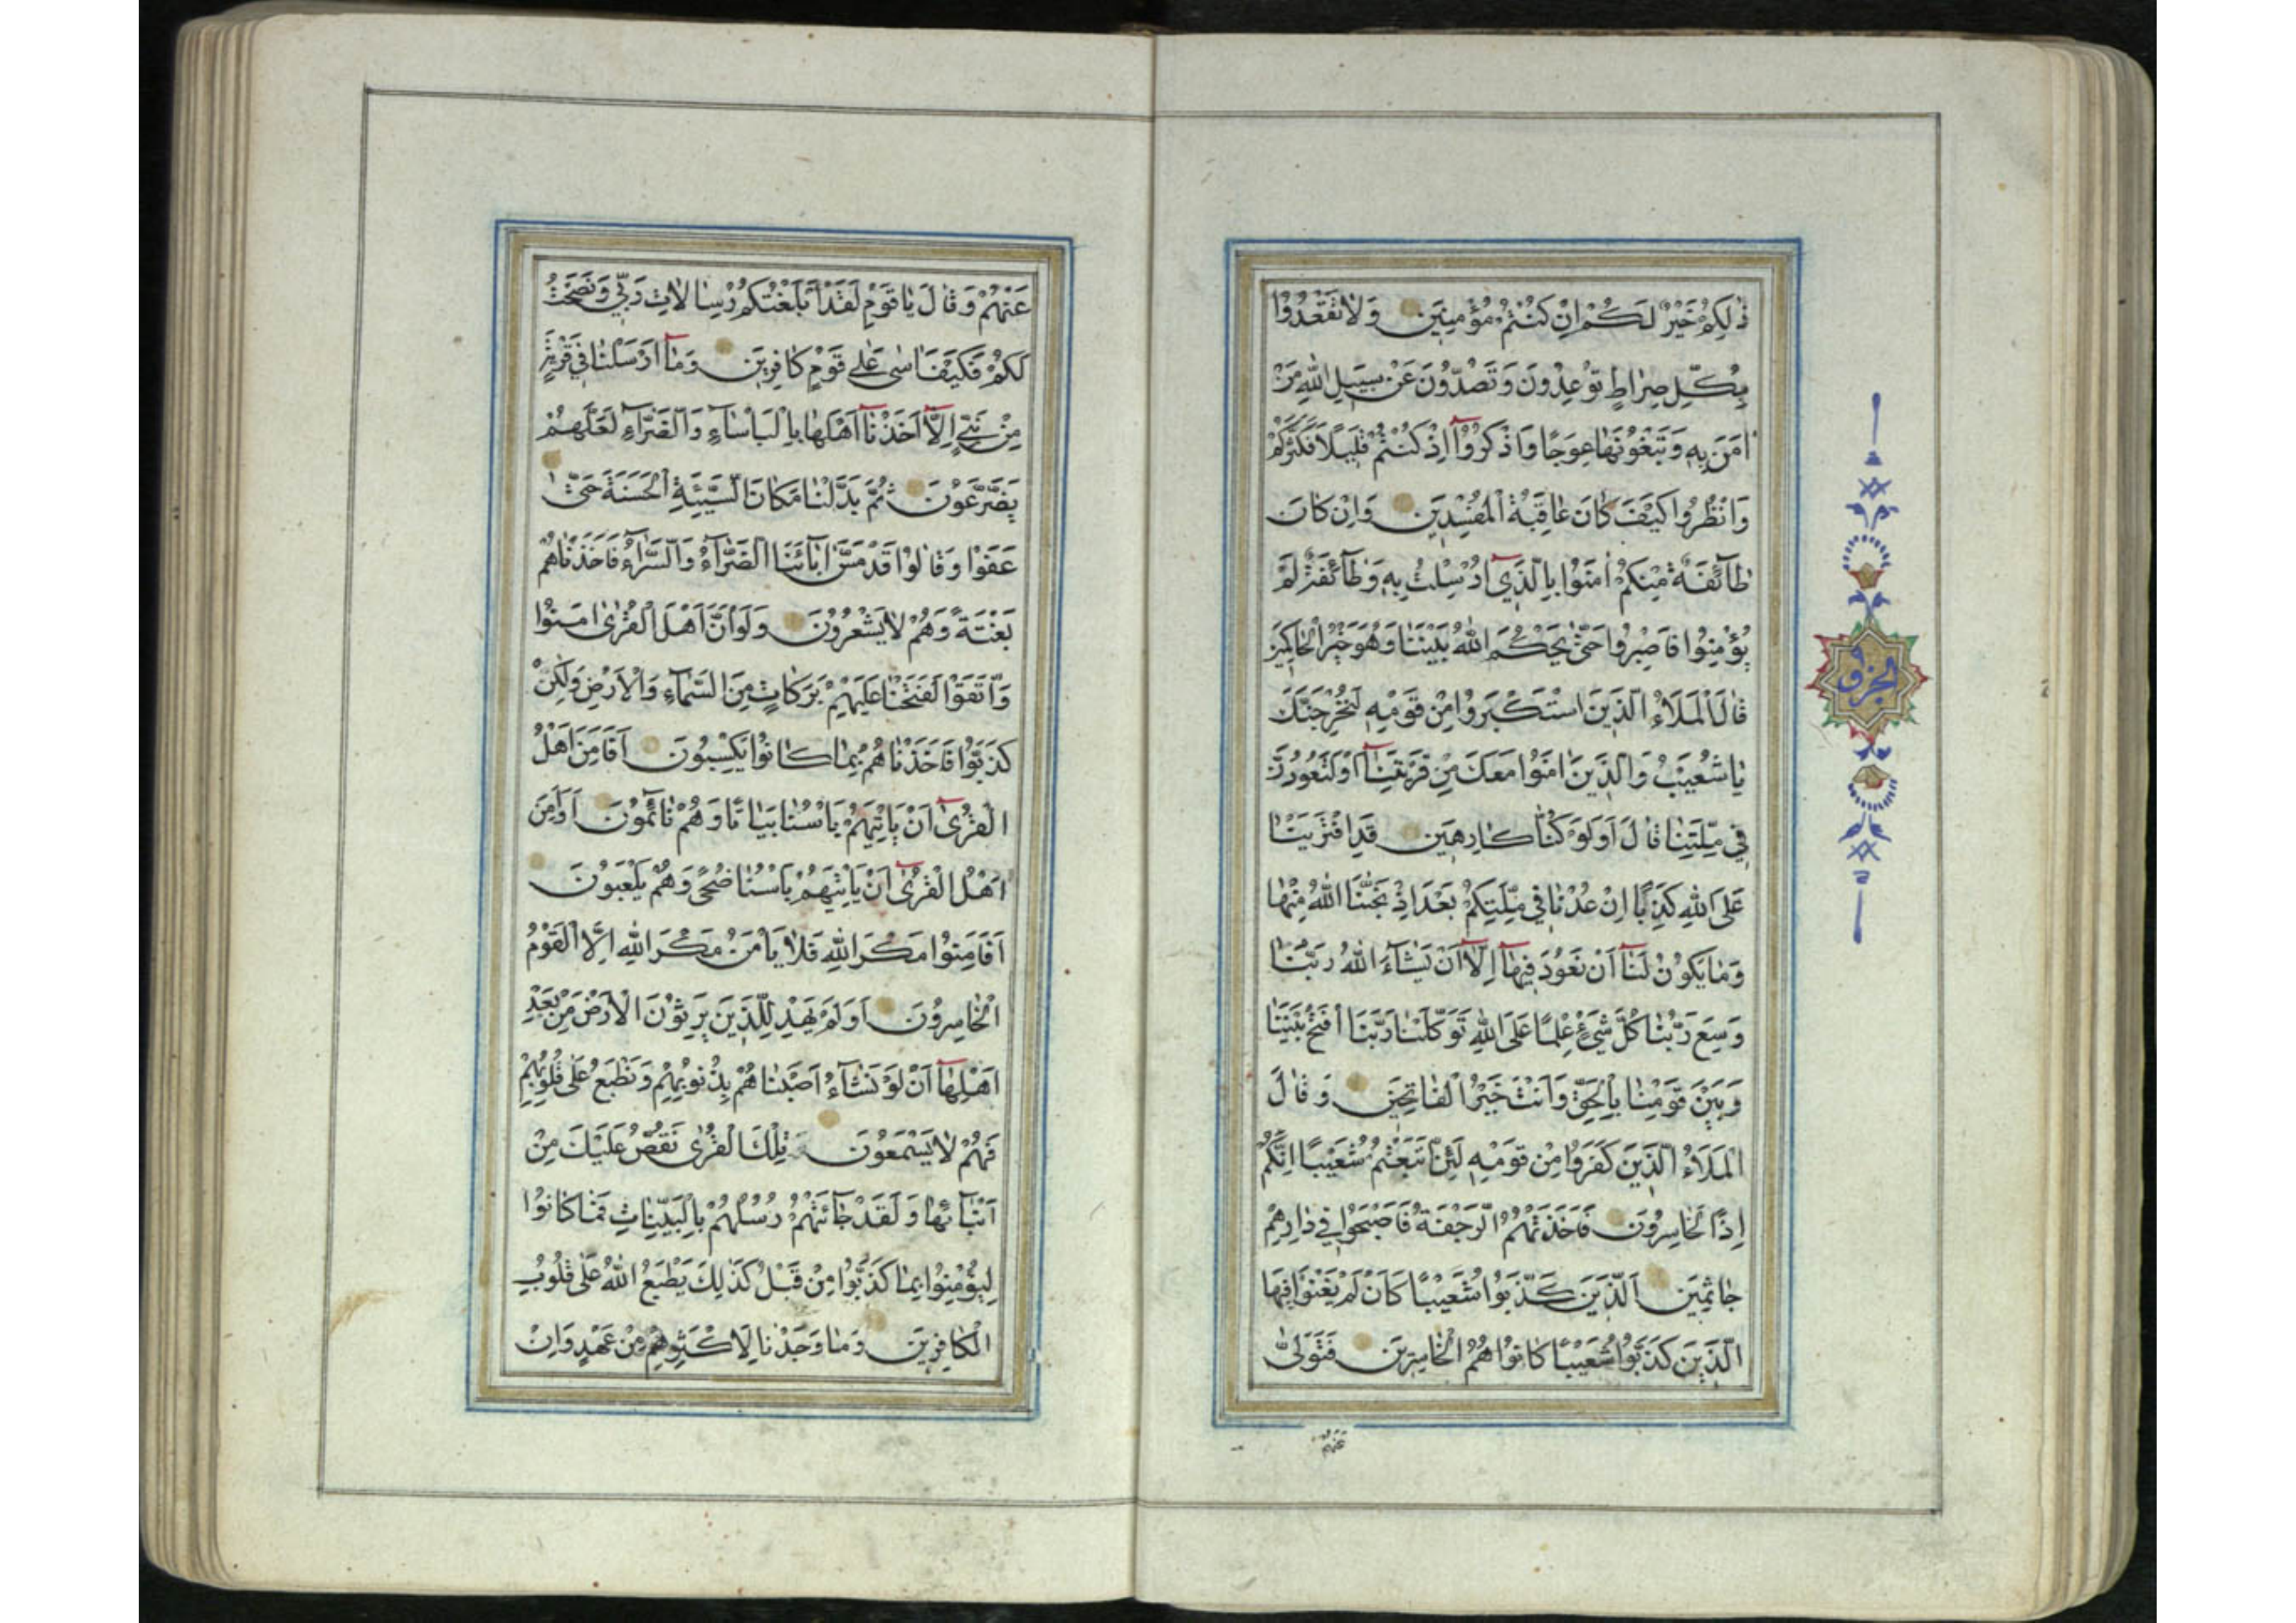 ذٰلِكُمْ خَيْرٌ لَكُمْ اِنْ كُنْتُمْ مُؤْمِنِينَ وَلَا تَقْعُدُوا
بِكُلِّ صِرَاطٍ تُوعِدُونَ وَتَصُدُّونَ عَنْ سَبِيلِ اللّٰهِ مَنْ
اٰمَنَ بِهِ وَتَبْغُونَهَا عِوَجًا وَاذْكُرُوٓا اِذْ كُنْتُمْ قَلِيلًا فَكَثَّرَكُمْ
وَانْظُرُوا كَيْفَ كَانَ عَاقِبَةُ الْمُفْسِدِينَ وَاِنْ كَانَ
طَآئِفَةٌ مِنْكُمْ اٰمَنُوا بِالَّذِيٓ اُرْسِلْتُ بِهِ وَطَآئِفَةٌ لَمْ
يُؤْمِنُوا فَاصْبِرُوا حَتّٰى يَحْكُمَ اللّٰهُ بَيْنَنَا وَهُوَ خَيْرُ الْحَاكِمِينَ
قَالَ الْمَلَاُ الَّذِينَ اسْتَكْبَرُوا مِنْ قَوْمِهِ لَنُخْرِجَنَّكَ
يَا شُعَيْبُ وَالَّذِينَ اٰمَنُوا مَعَكَ مِنْ قَرْيَتِنَآ اَوْ لَتَعُودُنَّ
فِي مِلَّتِنَا قَالَ اَوَلَوْ كُنَّا كَارِهِينَ قَدِ افْتَرَيْنَا
عَلَى اللّٰهِ كَذِبًا اِنْ عُدْنَا فِي مِلَّتِكُمْ بَعْدَ اِذْ نَجّٰنَا اللّٰهُ مِنْهَا
وَمَا يَكُونُ لَنَآ اَنْ نَعُودَ فِيهَآ اِلَّآ اَنْ يَشَآءَ اللّٰهُ رَبُّنَا
وَسِعَ رَبُّنَا كُلَّ شَيْءٍ عِلْمًا عَلَى اللّٰهِ تَوَكَّلْنَا رَبَّنَا افْتَحْ بَيْنَنَا
وَبَيْنَ قَوْمِنَا بِالْحَقِّ وَاَنْتَ خَيْرُ الْفَاتِحِينَ وَقَالَ
الْمَلَاُ الَّذِينَ كَفَرُوا مِنْ قَوْمِهِ لَئِنِ اتَّبَعْتُمْ شُعَيْبًا اِنَّكُمْ
اِذًا لَخَاسِرُونَ فَاَخَذَتْهُمُ الرَّجْفَةُ فَاَصْبَحُوا فِي دَارِهِمْ
جَاثِمِينَ اَلَّذِينَ كَذَّبُوا شُعَيْبًا كَاَنْ لَمْ يَغْنَوْا فِيهَا
الَّذِينَ كَذَّبُوا شُعَيْبًا كَانُوا هُمُ الْخَاسِرِينَ فَتَوَلّٰى
عَنْهُمْ
عَنْهُمْ وَقَالَ يَا قَوْمِ لَقَدْ اَبْلَغْتُكُمْ رِسَالَاتِ رَبِّي وَنَصَحْتُ
لَكُمْ فَكَيْفَ اٰسٰى عَلٰى قَوْمٍ كَافِرِينَ وَمَآ اَرْسَلْنَا فِي قَرْيَةٍ
مِنْ نَبِيٍّ اِلَّآ اَخَذْنَآ اَهْلَهَا بِالْبَاْسَآءِ وَالضَّرَّآءِ لَعَلَّهُمْ
يَضَّرَّعُونَ ثُمَّ بَدَّلْنَا مَكَانَ السَّيِّئَةِ الْحَسَنَةَ حَتّٰى
عَفَوْا وَقَالُوا قَدْ مَسَّ اٰبَآئَنَا الضَّرَّآءُ وَالسَّرَّآءُ فَاَخَذْنَاهُمْ
بَغْتَةً وَهُمْ لَا يَشْعُرُونَ وَلَوْ اَنَّ اَهْلَ الْقُرٰى اٰمَنُوا
وَاتَّقَوْا لَفَتَحْنَا عَلَيْهِمْ بَرَكَاتٍ مِنَ السَّمَآءِ وَالْاَرْضِ وَلٰكِنْ
كَذَّبُوا فَاَخَذْنَاهُمْ بِمَا كَانُوا يَكْسِبُونَ اَفَاَمِنَ اَهْلُ
الْقُرٰىٓ اَنْ يَاْتِيَهُمْ بَاْسُنَا بَيَاتًا وَهُمْ نَآئِمُونَ اَوَاَمِنَ
اَهْلُ الْقُرٰىٓ اَنْ يَاْتِيَهُمْ بَاْسُنَا ضُحًى وَهُمْ يَلْعَبُونَ
اَفَاَمِنُوا مَكْرَ اللّٰهِ فَلَا يَاْمَنُ مَكْرَ اللّٰهِ اِلَّا الْقَوْمُ
الْخَاسِرُونَ اَوَلَمْ يَهْدِ لِلَّذِينَ يَرِثُونَ الْاَرْضَ مِنْ بَعْدِ
اَهْلِهَآ اَنْ لَوْ نَشَآءُ اَصَبْنَاهُمْ بِذُنُوبِهِمْ وَنَطْبَعُ عَلٰى قُلُوبِهِمْ
فَهُمْ لَا يَسْمَعُونَ تِلْكَ الْقُرٰى نَقُصُّ عَلَيْكَ مِنْ
اَنْبَآئِهَا وَلَقَدْ جَآئَتْهُمْ رُسُلُهُمْ بِالْبَيِّنَاتِ فَمَا كَانُوا
لِيُؤْمِنُوا بِمَا كَذَّبُوا مِنْ قَبْلُ كَذٰلِكَ يَطْبَعُ اللّٰهُ عَلٰى قُلُوبِ
الْكَافِرِينَ وَمَا وَجَدْنَا لِاَكْثَرِهِمْ مِنْ عَهْدٍ وَاِنْ